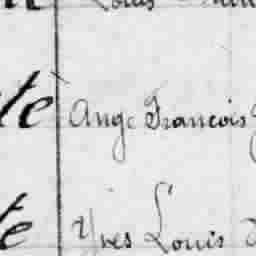 Louis
te Ange François
te Yves Louis